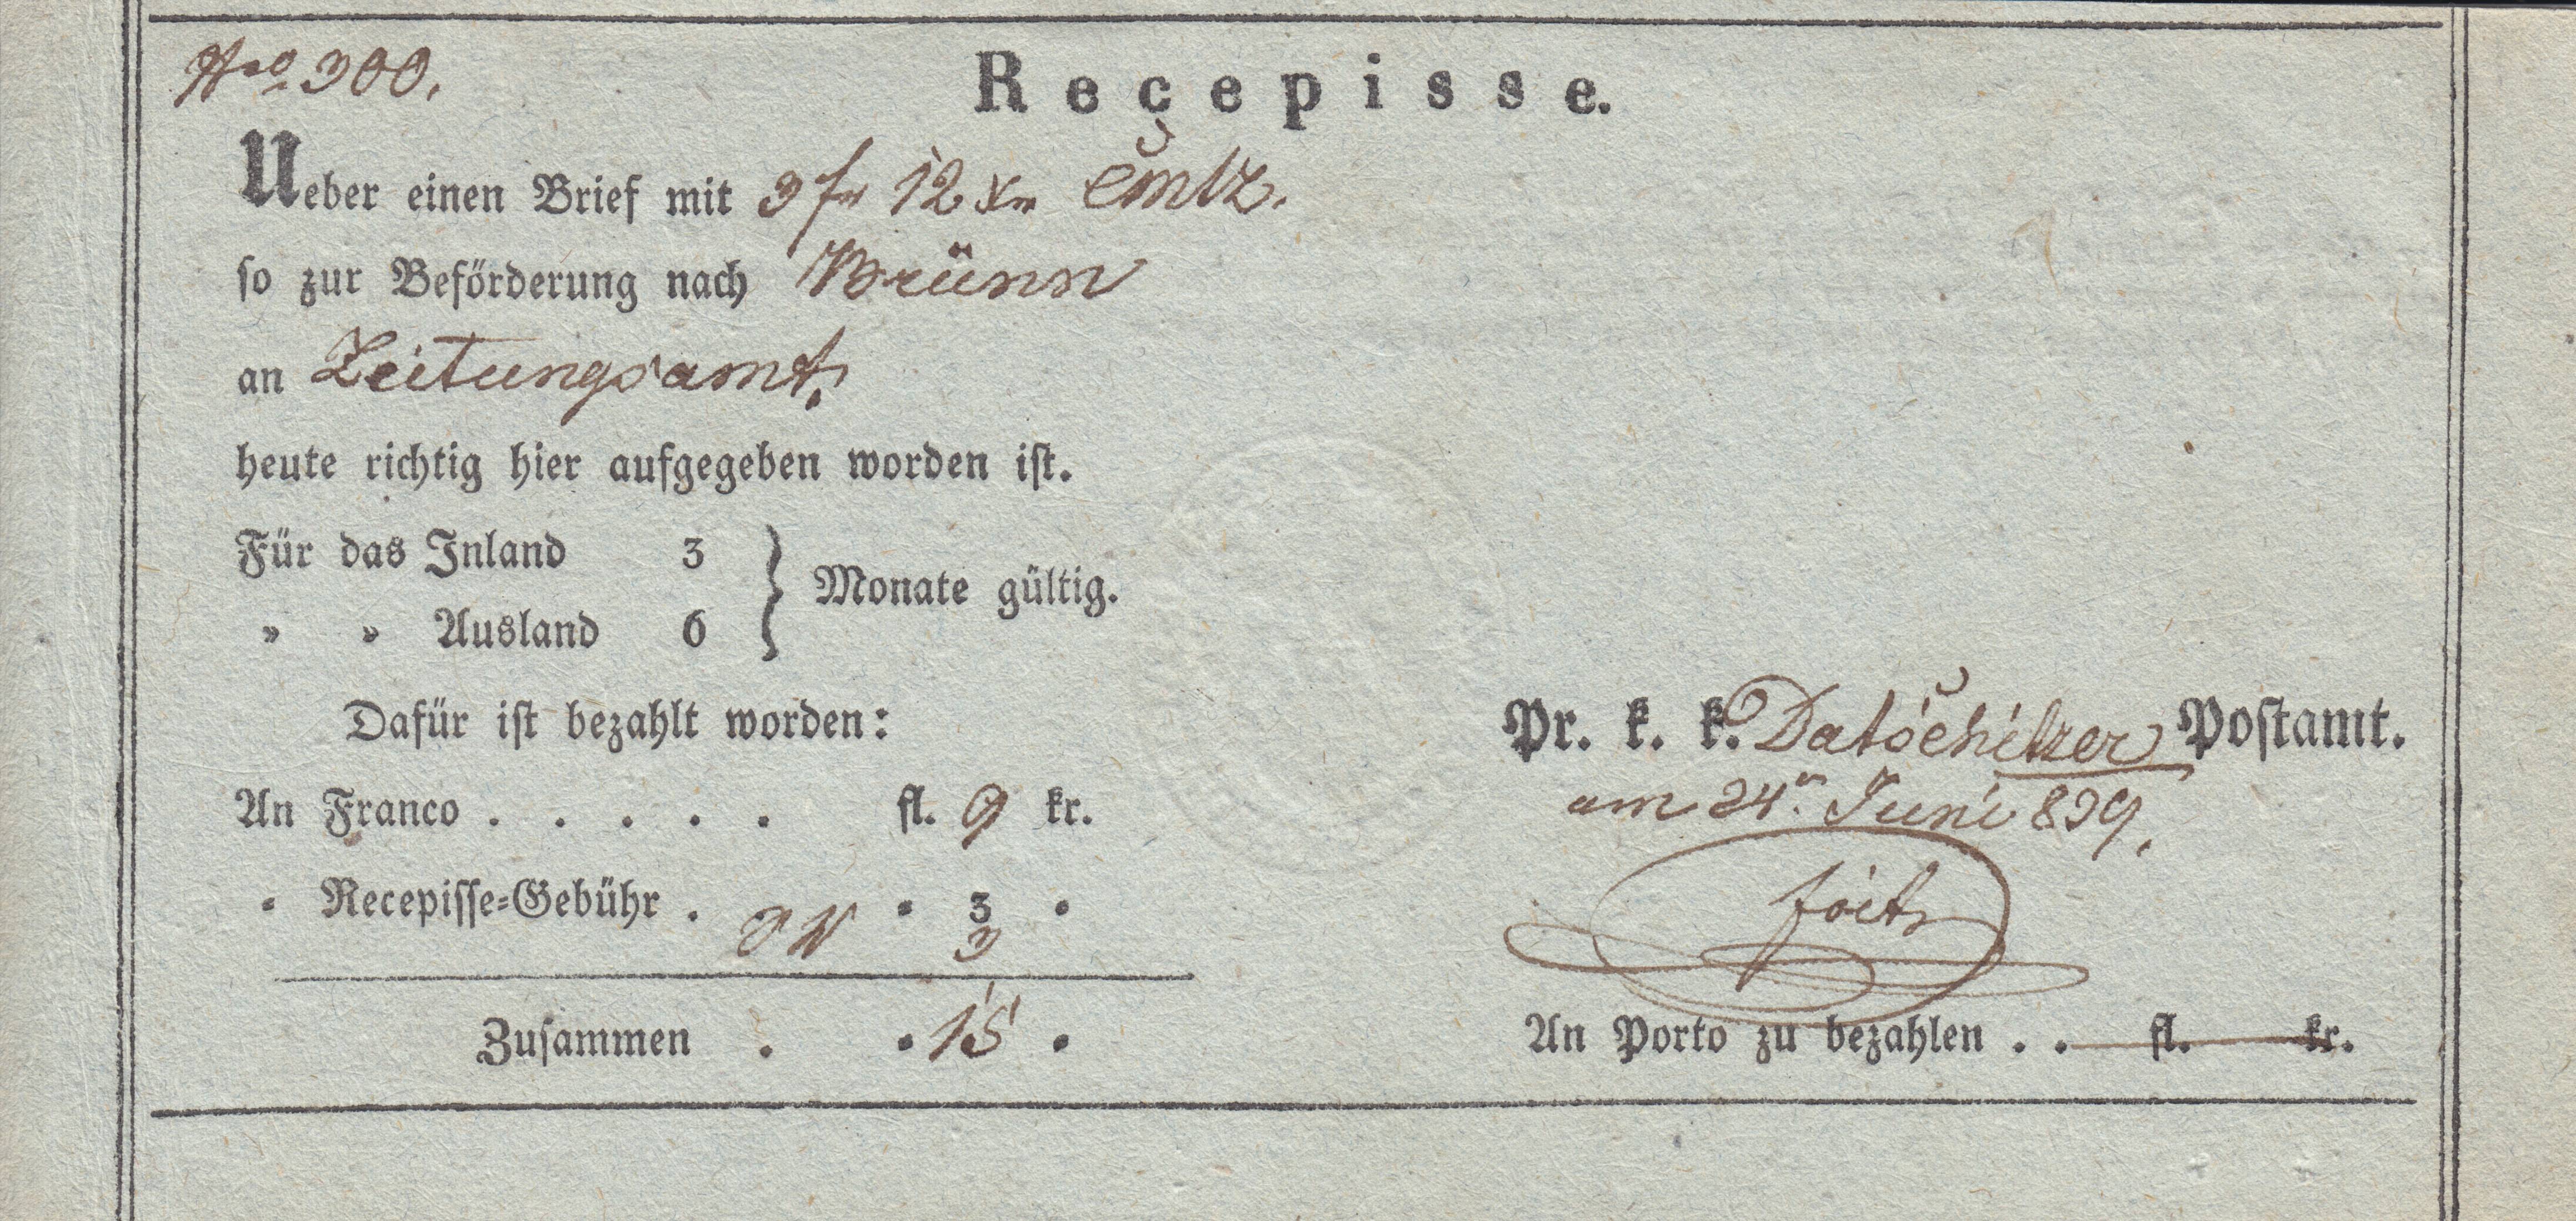 Nro 300.
Recepisse.
Ueber einen Brief mit 3 fr 12 xr Cmtz.
so zur Beförderung nach Brünn
an Zeitungsamt.
heute richtig hier aufgegeben worden ist.
Für das Inland 3
» » Ausland 6
} Monate gültig.
Dafür ist bezahlt worden:
An Franco . . . . . fl. 9 kr.
" Recepisse-Gebühr . " 3 "
3
Zusammen . " 15 "
Pr. k. k. Datschitzer Postamt.
am 24n Juni 839.
An Porto zu bezahlen . . fl. kr.